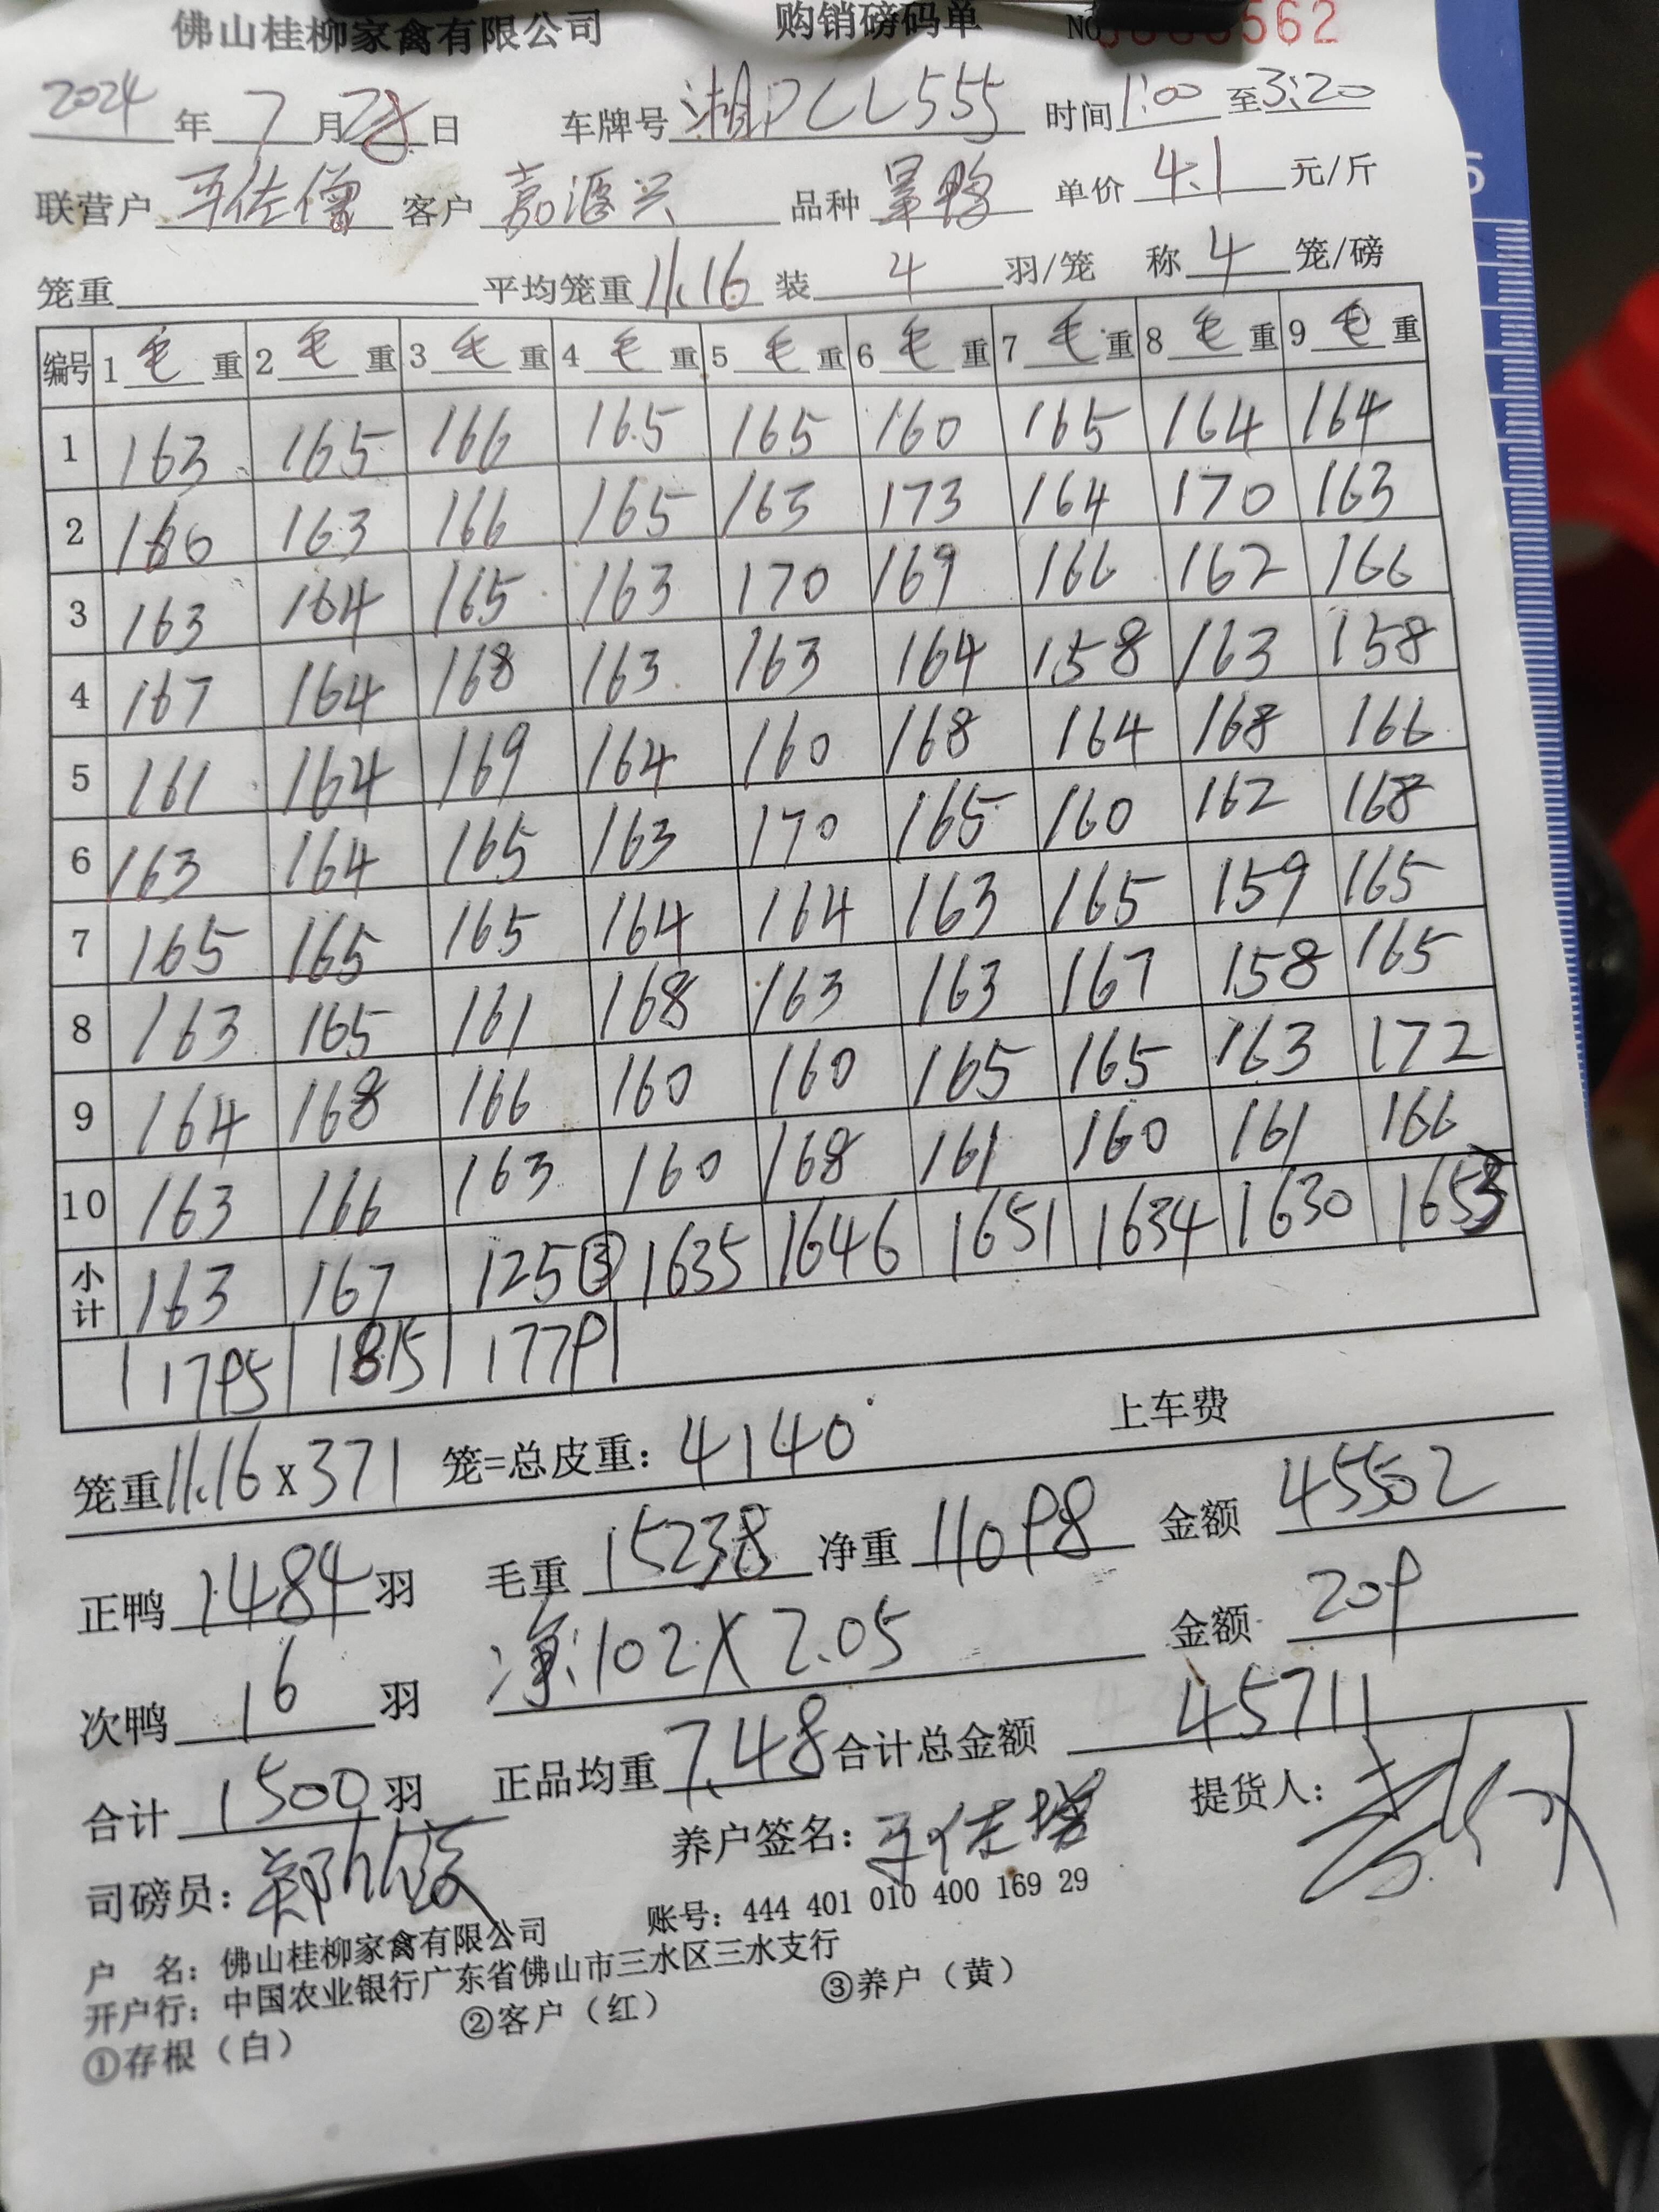 佛山桂柳家禽有限公司 购销磅码单 NO 562
2024年7月28日 车牌号 湘DCL555 时间1:00至3:20
联营户 客户 嘉源兴 品种 单价 4.1 元/斤
笼重 平均笼重11.16 装 4 羽/笼 称 4 笼/磅
编号 1毛重 2毛重 3毛重 4毛重 5毛重 6毛重 7毛重 8毛重 9毛重
1 163 165 166 165 165 160 165 164 164
2 160 163 166 165 163 173 164 170 163
3 163 164 165 163 170 169 166 162 166
4 167 164 168 163 163 164 158 163 158
5 161 164 169 164 160 168 164 168 166
6 163 164 165 163 170 165 160 162 168
7 165 165 165 164 164 163 165 159 165
8 163 165 161 168 163 163 167 158 165
9 164 168 166 160 160 165 165 163 172
10 163 166 163 160 168 161 160 161 166
小计 163 167 125③ 1635 1646 1651 1634 1630 1653
1795 1815 1779
笼重11.16x371 笼=总皮重：4140 上车费
正鸭1484羽 毛重15238 净重11098 金额45502
次鸭16羽 净:102X2.05 金额209
合计1500羽 正品均重7.48 合计总金额45711
司磅员： 养户签名： 提货人：
户 名：佛山桂柳家禽有限公司 账号：444 401 010 400 169 29
开户行：中国农业银行广东省佛山市三水区三水支行
①存根（白） ②客户（红） ③养户（黄）